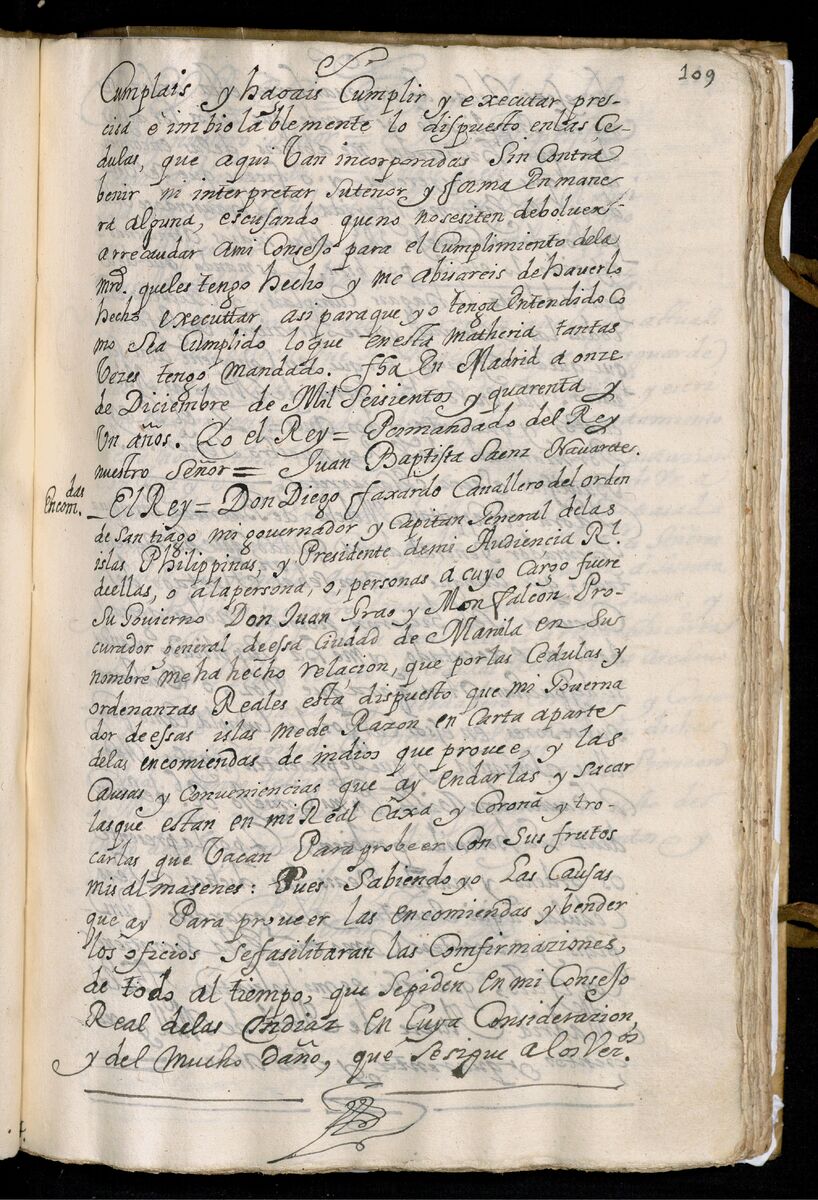 109
Cumplais y hagais Cumplir y executar pres-
cisa e imbiolablemente lo dispuesto en las Ce-
dulas, que aqui Van incorporadas Sin Contra
benir ni interpretar su tenor y forma En mane
ra alguna, escusando que no nosesiten deboluer
arrecaudar ami Consejo para el Cumplimiento dela
mrd. queles tengo hecho y me abisareis de haverlo
hecho executtar asi para que yo tenga Entendido Co
mo Sea Cumplido lo que en esta matheria tantas
Vezes tengo Mandado. fha En Madrid a onze
de Diciembre de Mil Seisientos y quarenta y
Vn años. Yo el Rey= Pomandado del Rey
nuestro Señor= Juan Baptista Saenz Navarete.
Encom.das
_El Rey= Don Diego faxardo Cauallero del orden
de Santiago mi governador y Capitan General delas
islas Philippinas, y Presidente demi Audiencia Rl.
deellas, o ala persona, o, personas a cuyo cargo fuere
Su Govierno Don Juan Grao y Monfalcon Pro-
curador general deessa Ciudad de Manila en Sus
nombre meha hecho relacion, que por las Cedulas y
ordenanzas Reales esta dispuesto que mi Guerna
dor deessas islas mede Razon en Carta aparte
delas encomiendas de indios que provee, y las
Causas y Conveniencias que ay endarlas y sacar
lasque estan en mi Real Caxa y Corona y tro-
carlas que Vacan Para grobeer Con Sus frutos
mis almasenes: Pues Sabiendo yo Las Causas
que ay Para proveer las encomiendas y bender
los oficios Sefasilitaran las Comfirmaziones,
de todo al tiempo, que Sepiden en mi Consejo
Real delas Indiaz en Cuya Considerazion
y del mucho daño, que Sesigue a los Ver.os